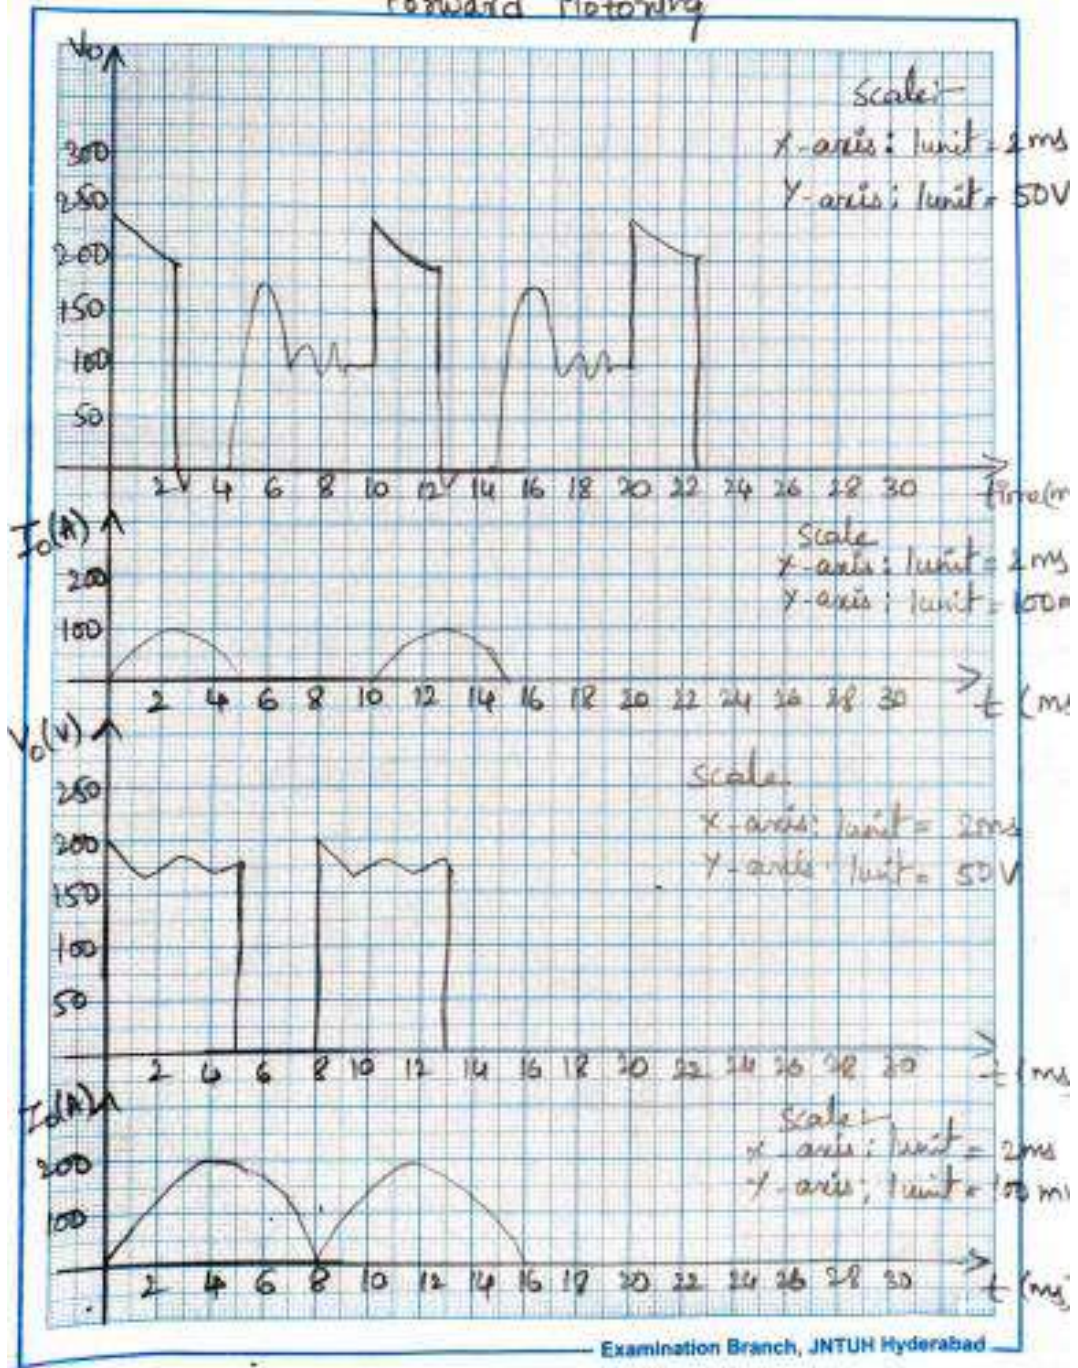 Forward Motoring
Vo
Scale:-
X-axis: 1unit = 2 ms
Y-axis: 1unit = 50V
300
250
200
150
100
50
2 4 6 8 10 12 14 16 18 20 22 24 26 28 30
time(m
Io(A)
Scale
X-axis: 1unit = 2 ms
Y-axis: 1unit = 100m
200
100
2 4 6 8 10 12 14 16 18 20 22 24 26 28 30
t (ms
Vo(V)
Scale
X-axis: 1unit = 2ms
Y-axis: 1unit = 50V
250
200
150
100
50
2 4 6 8 10 12 14 16 18 20 22 24 26 28 30
t (ms
Io(A)
Scale:-
X axis: 1unit = 2ms
Y-axis: 1unit = 100 mv
200
100
2 4 6 8 10 12 14 16 18 20 22 24 26 28 30
t (ms)
Examination Branch, JNTUH Hyderabad